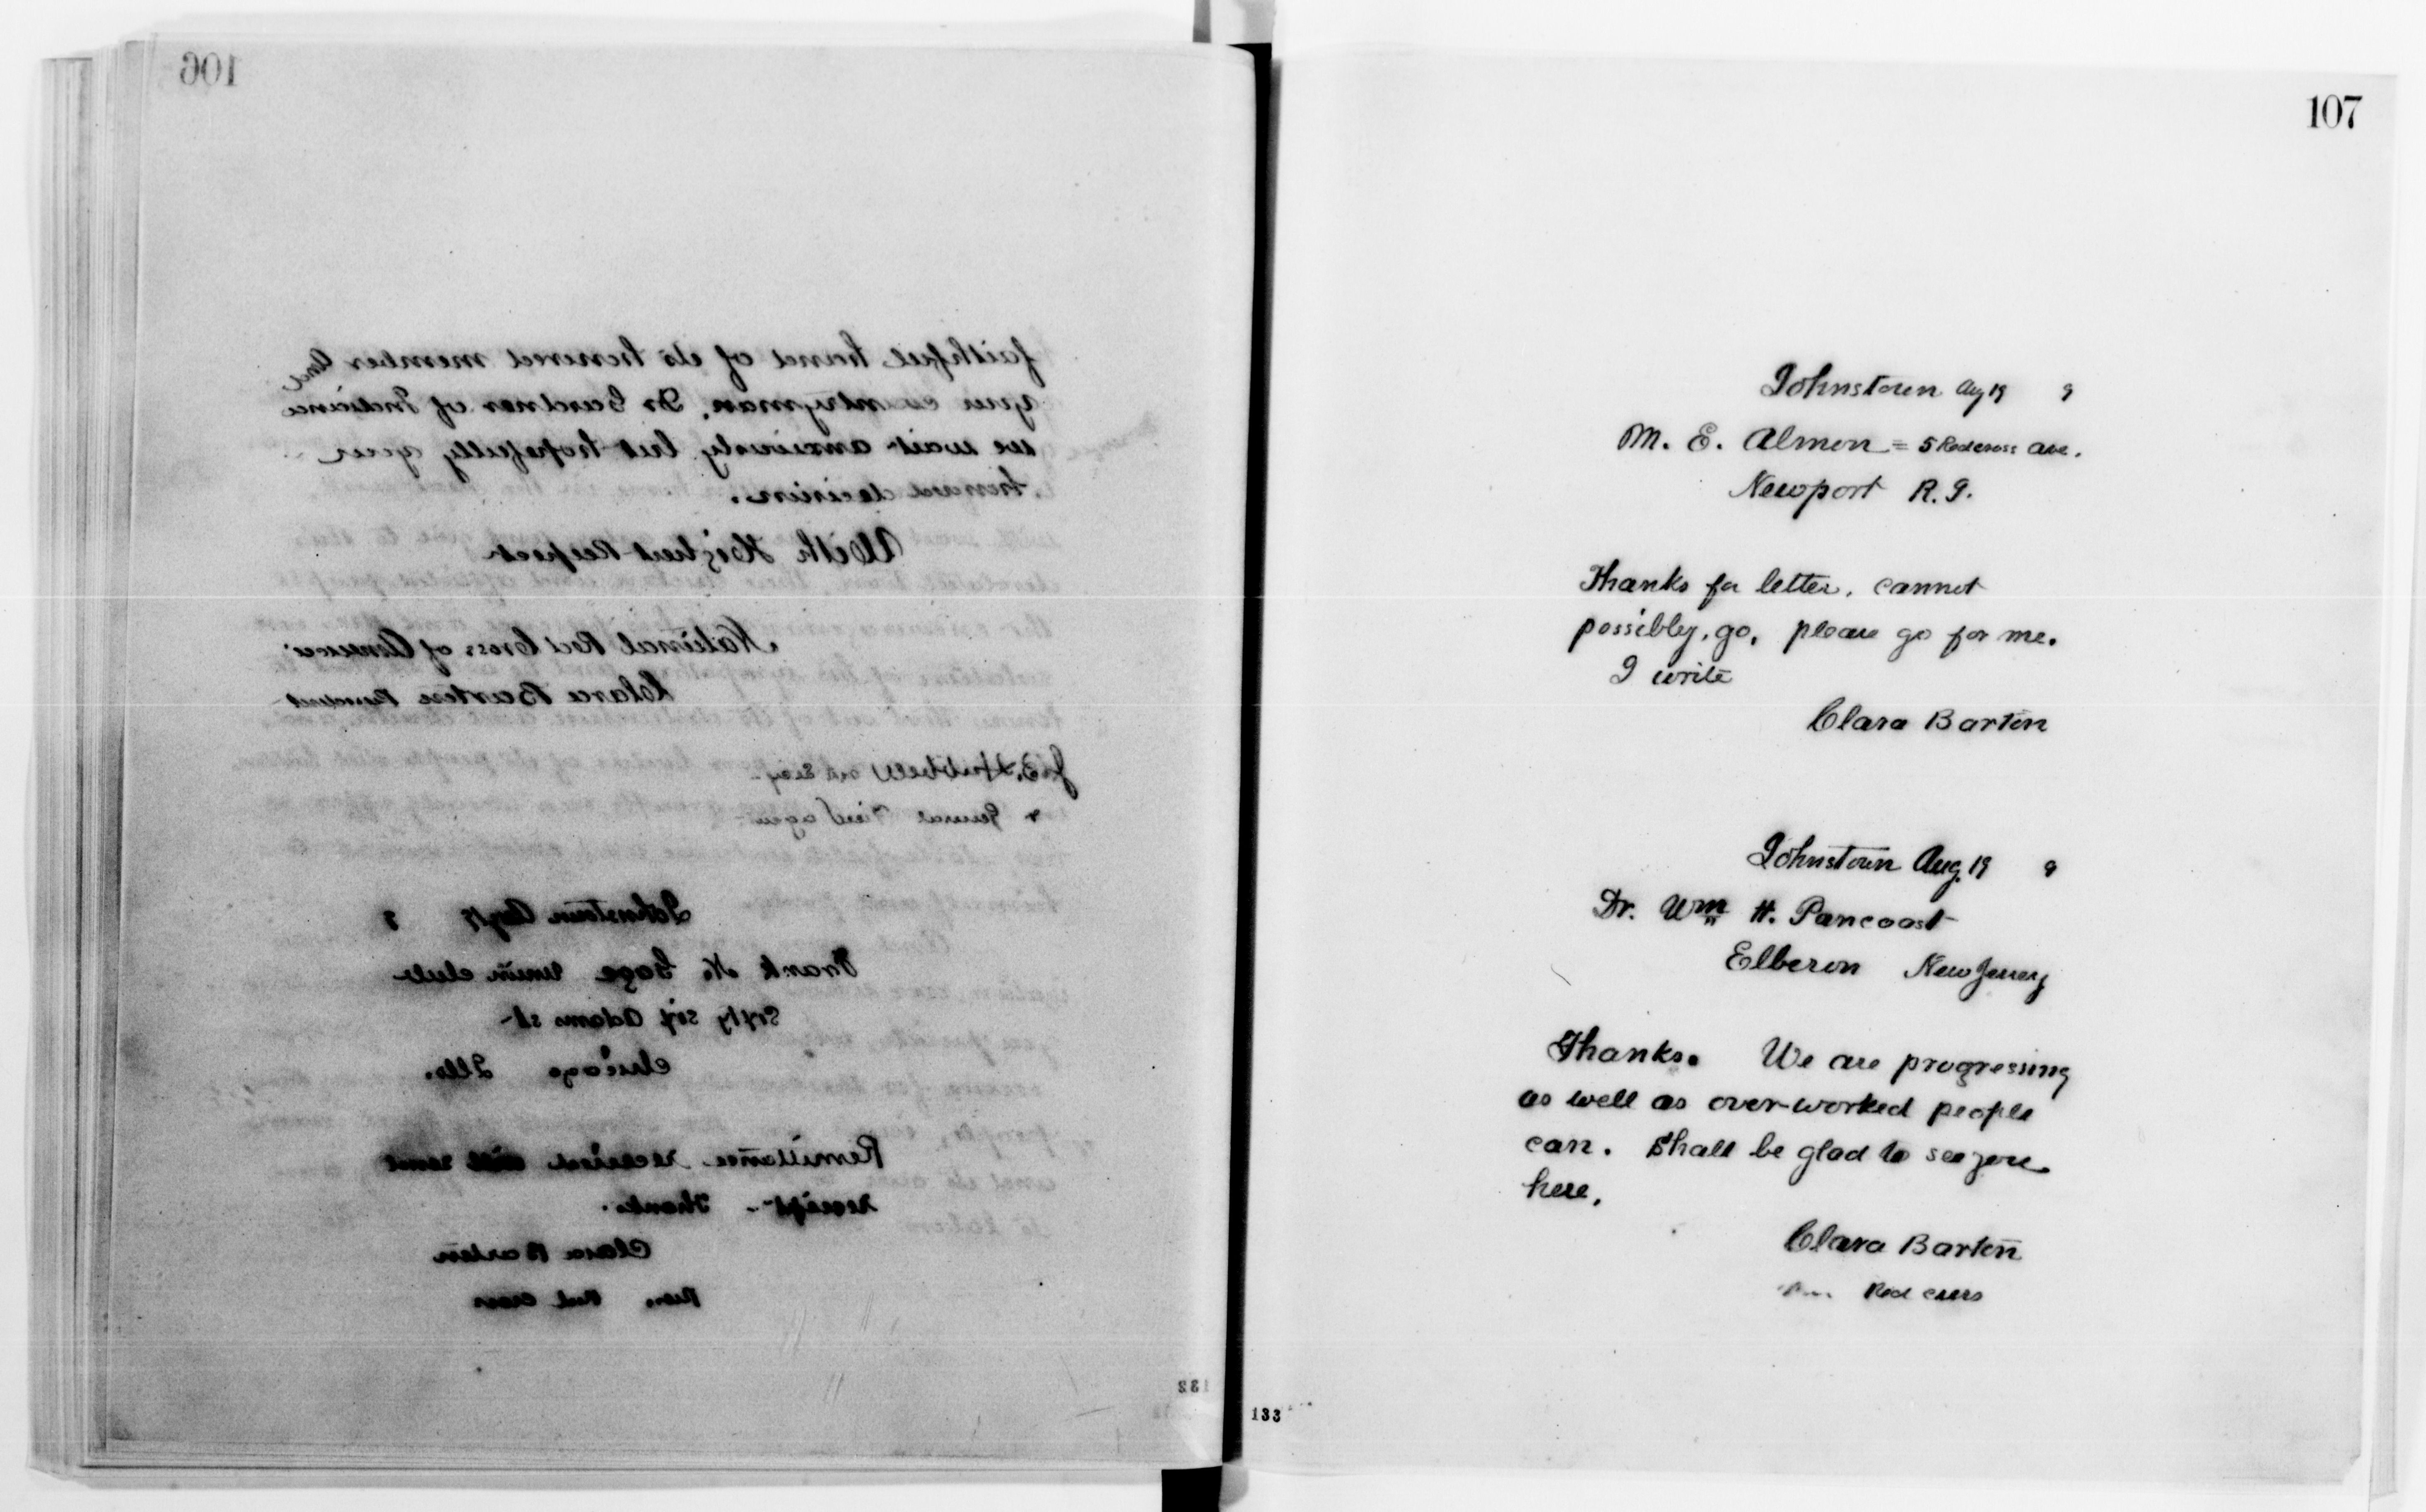 106
faithful hand of its honored member and
your countryman, Dr Gardner of Indiana
we wait anxiously but hopefully your
honored decision.
With Highest Respect
National Red Cross of America
Clara Barton President
J.B. Hubbell
& General Field agent
Johnstown Aug 19 9
Frank N. Gage Union club
Sixty six Adams st
Chicago Ills.
Remittance received will send
receipt. Thanks.
Clara Barton
Pres. Red cross
132
107
Johnstown Aug 19 9
M. E. Almon = 5 Redcross Ave.
Newport R. I.
Thanks for letter. cannot
possibly, go. please go for me.
I write
Clara Barton
Johnstown Aug. 19 9
Dr. Wm H. Pancoast
Elberon New Jersey
Thanks. We are progressing
as well as over-worked people
can. Shall be glad to see you
here.
Clara Barton
Red cross
133